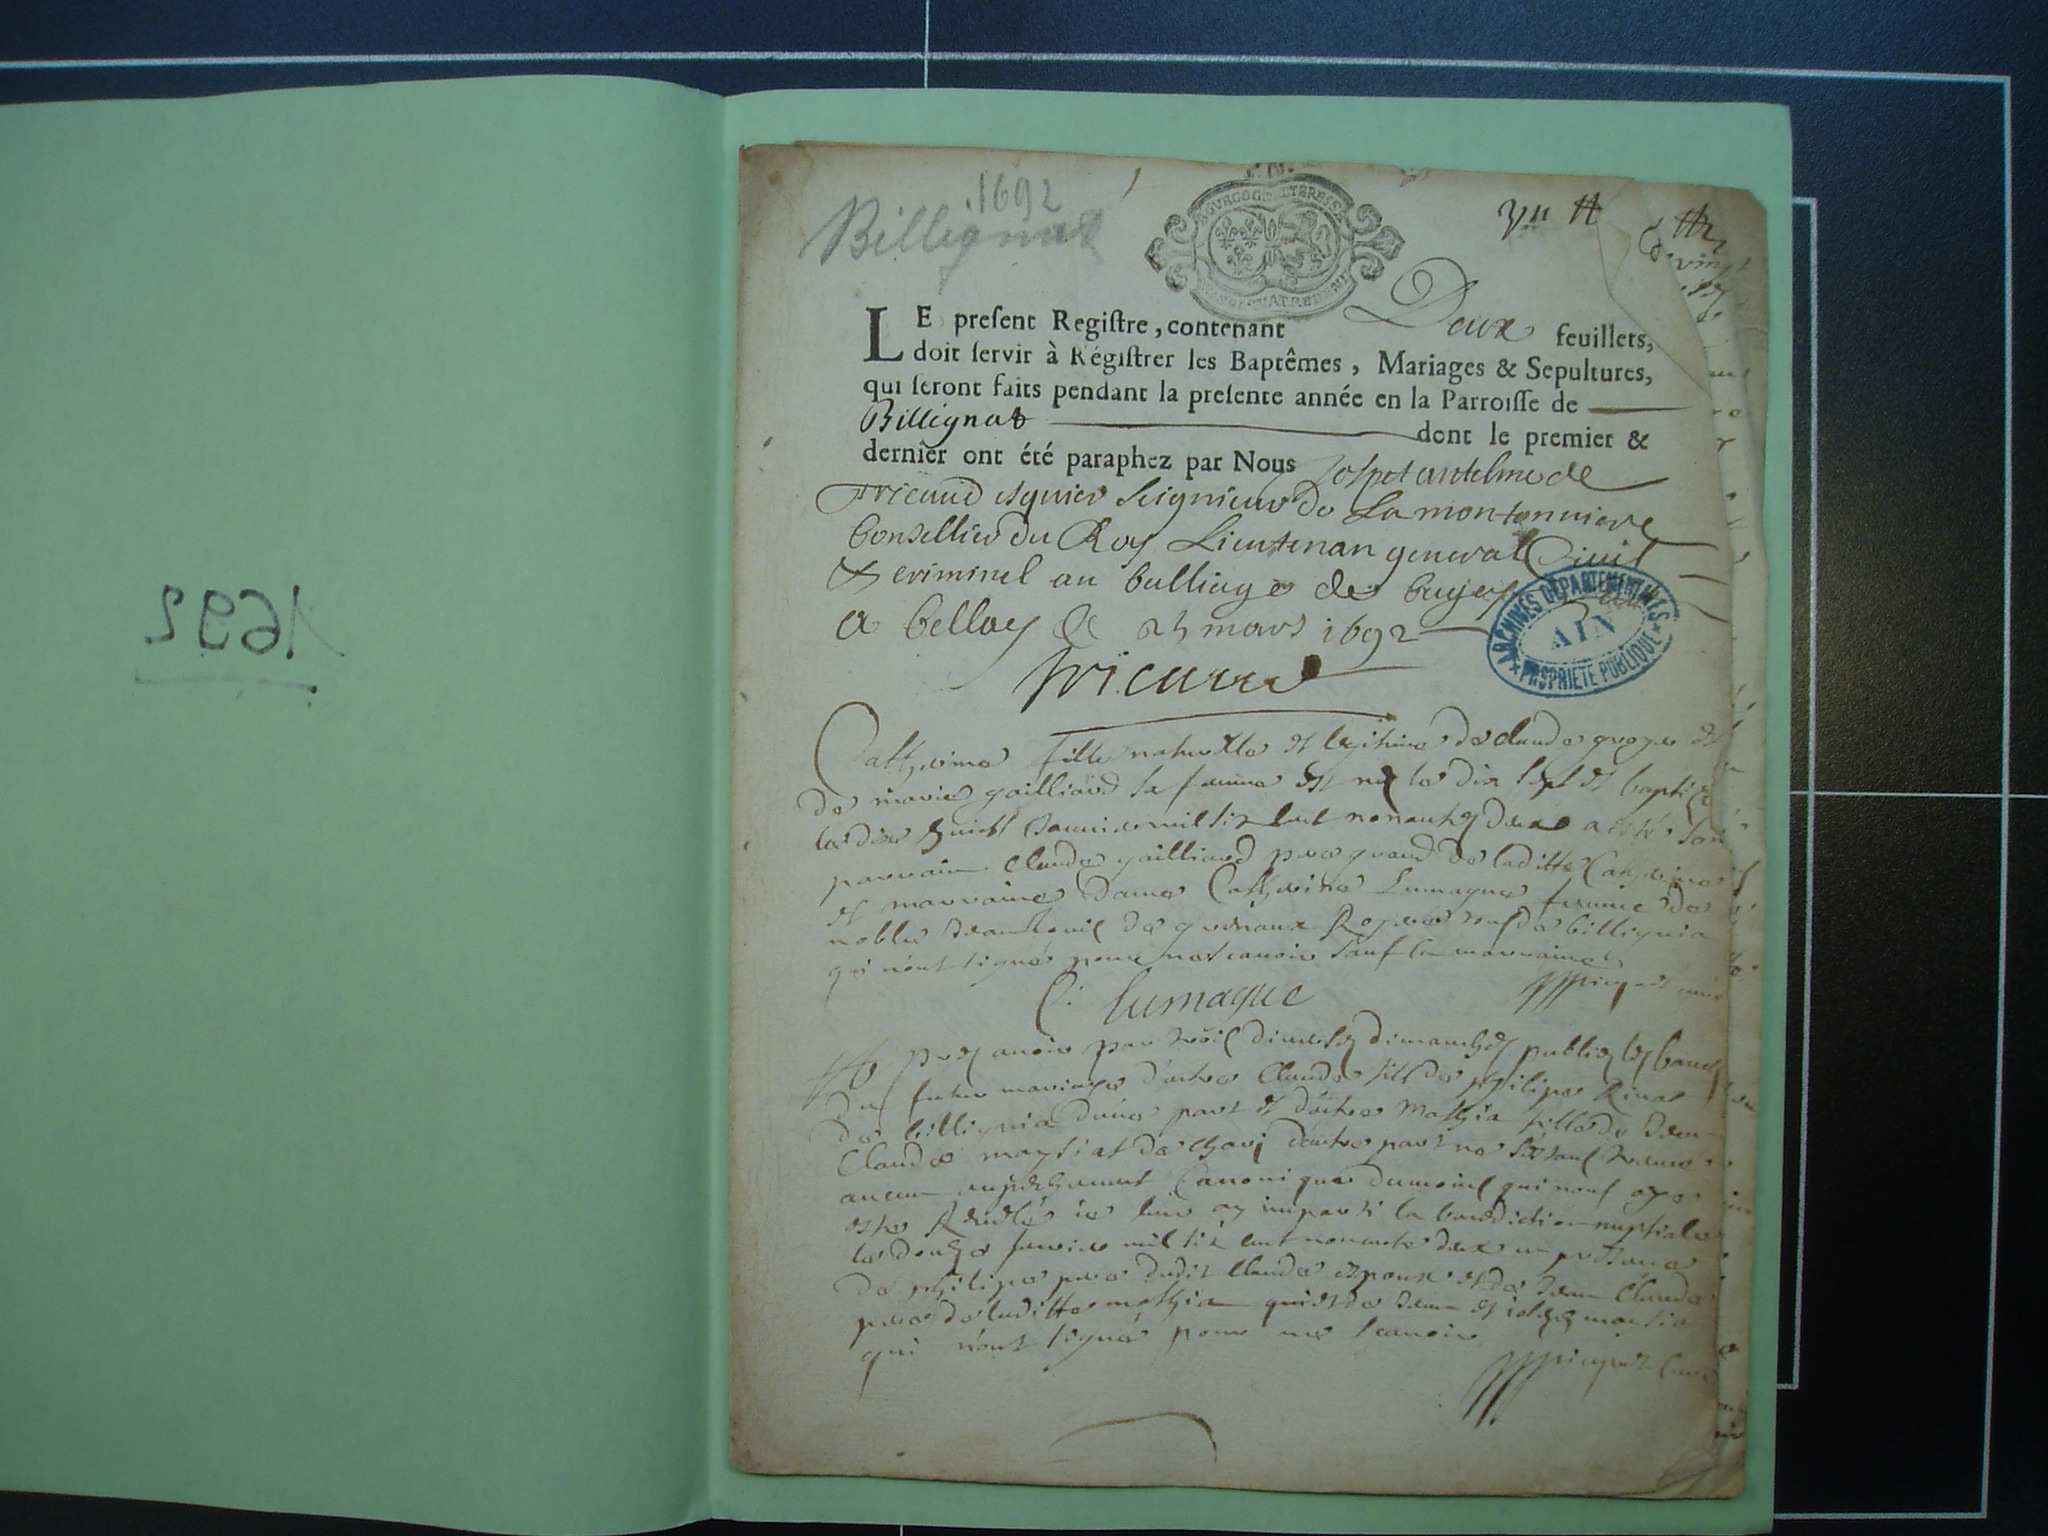 1692
Billignat
1692
BOURGOGNE ET BRESSE
Deux
LE present Registre, contenant Deux feuillets,
doit servir à Régistrer les Baptêmes, Mariages & Sepultures,
qui seront faits pendant la presente année en la Parroisse de
Billignat dont le premier &
dernier ont été paraphez par Nous Jospet antelme de
tricaud esquier Seignieur de La montonniere
Consellier du Roy Lieutenan general Civil
& criminel au balliage de bugey
a belley le 25 mars 1692
tricaud
ARCHIVES DÉPARTEMENTALES
AIN
PROPRIÉTÉ PUBLIQUE
Catherine fille naturelle et legitime de claude et
de marie gailliard sa femme est née le dix sept et baptizé
le dix huict Januier mil six cent nonante deux a esté son
parrain Claude gailliard pere grand de laditte Catherine
et marraine dame Catherine Lumague femme de
noble de billignia
qui n'ont signé pour ne scauoir sauf la marraine
C. lumague
apres auoir par trois diuerses dimanches publié les bans
du futur mariage d'entre Claude fils de philipe
de billignia d'une part et d'autre Mathia fille de Jean
Claude de d'autre part ne s'estant treuué
aucun empechement Canonique du moins qui nous aye
esté reuelé ie leur ay imparti la benediction nuptiale
le douze feurier mil six cent nonante deux en presence
de philipe pere dudit Claude espoux et de Jean Claude
pere de laditte mathia de Jean et
qui n'ont signé pour ne scauoir